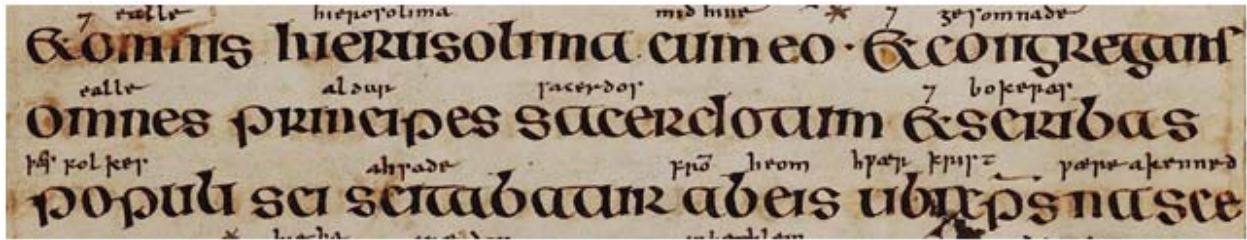 ⁊ ealle hierosolima mid hine ⁊ gesomnade
& omnis hierusolima cum eo · & congregans
ealle aldur sacerdos ⁊ bokeras
omnes principes sacerdotum & scribas
folkes ahsade frō heom hwær krist wære akenned
populi sci scitabatur ab eis ubi xp̄s nasce